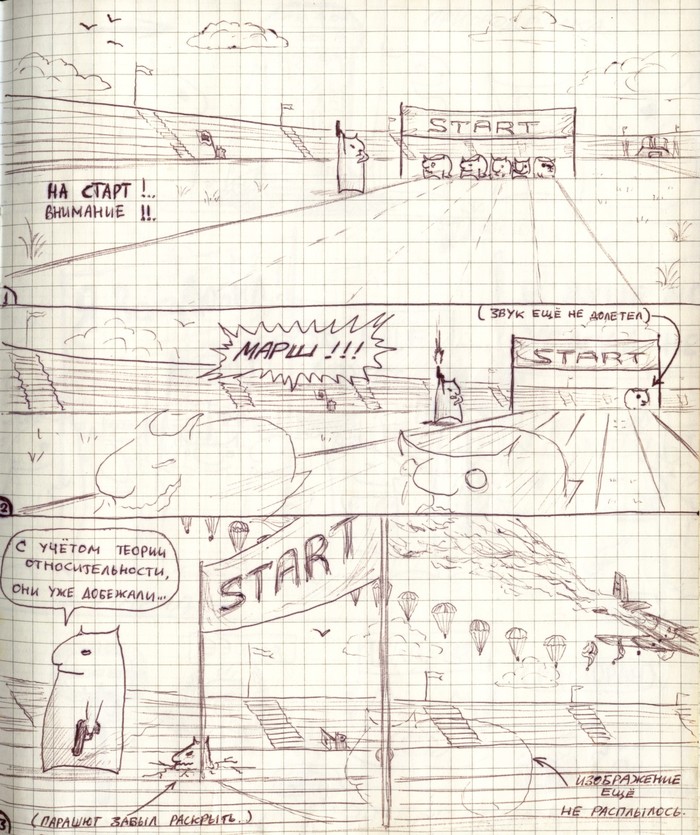 START
НА СТАРТ !..
ВНИМАНИЕ !!.
1
(ЗВУК ЕЩЁ НЕ ДОЛЕТЕЛ)
МАРШ !!!
START
2
С УЧЁТОМ ТЕОРИИ
ОТНОСИТЕЛЬНОСТИ,
ОНИ УЖЕ ДОБЕЖАЛИ...
START
ИЗОБРАЖЕНИЕ
ЕЩЁ
НЕ РАСПЛЫЛОСЬ.
3
(ПАРАШЮТ ЗАБЫЛ РАСКРЫТЬ.)